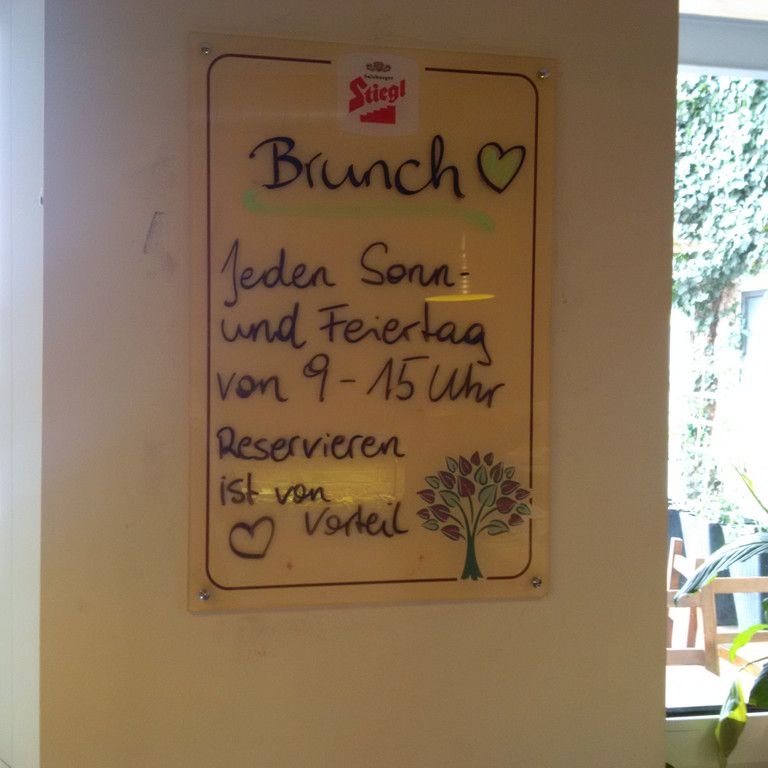 Salzburger
Stiegl
Brunch
Jeden Sonn-
und Feiertag
von 9-15 Uhr
Reservieren
ist von
Vorteil